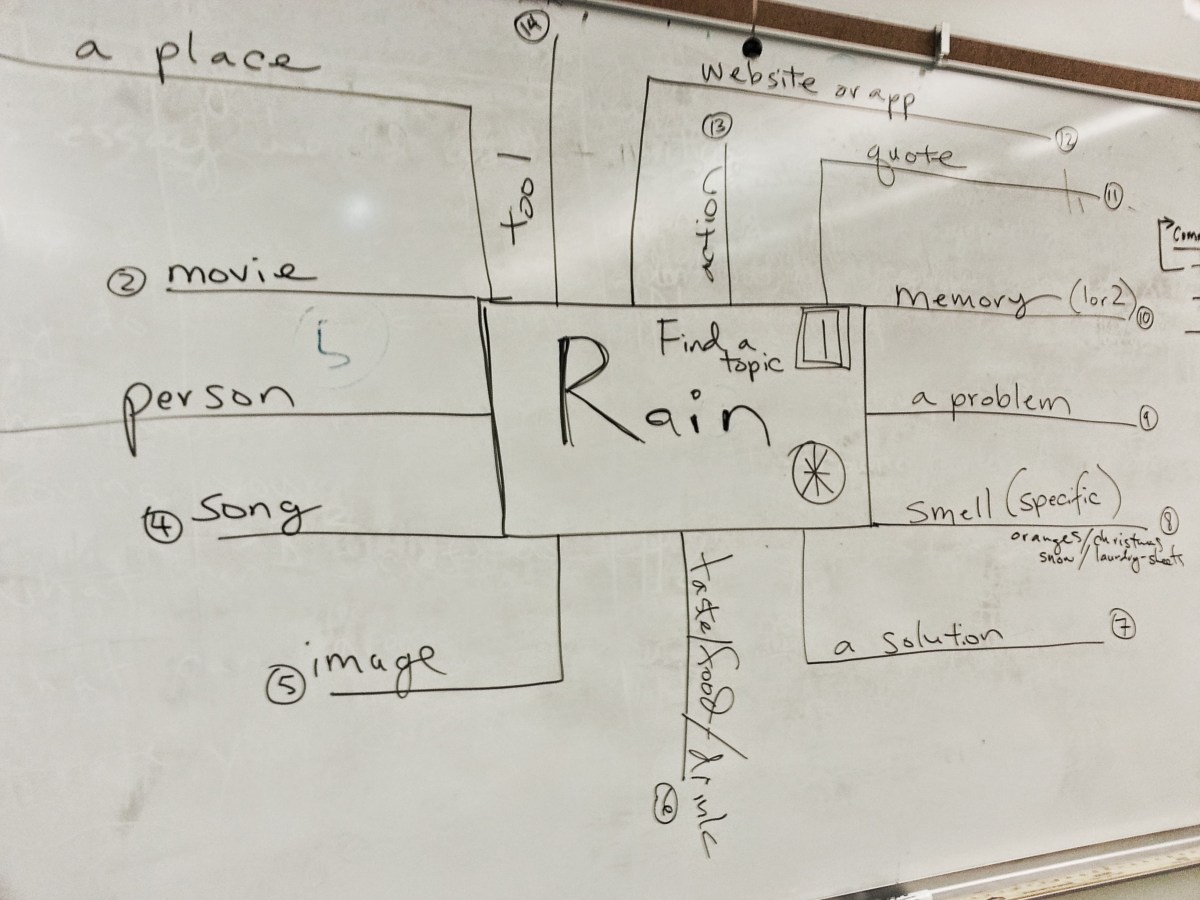 14
a place
website or app
12
tool
13
action
quote
11
② movie
memory (1or2)
10
Find a
topic
1
Rain
5
person
a problem
9
④ song
smell (specific)
8
oranges/christmas
snow/laundry-sheets
⑤ image
taste/food/drink
6
a solution
7